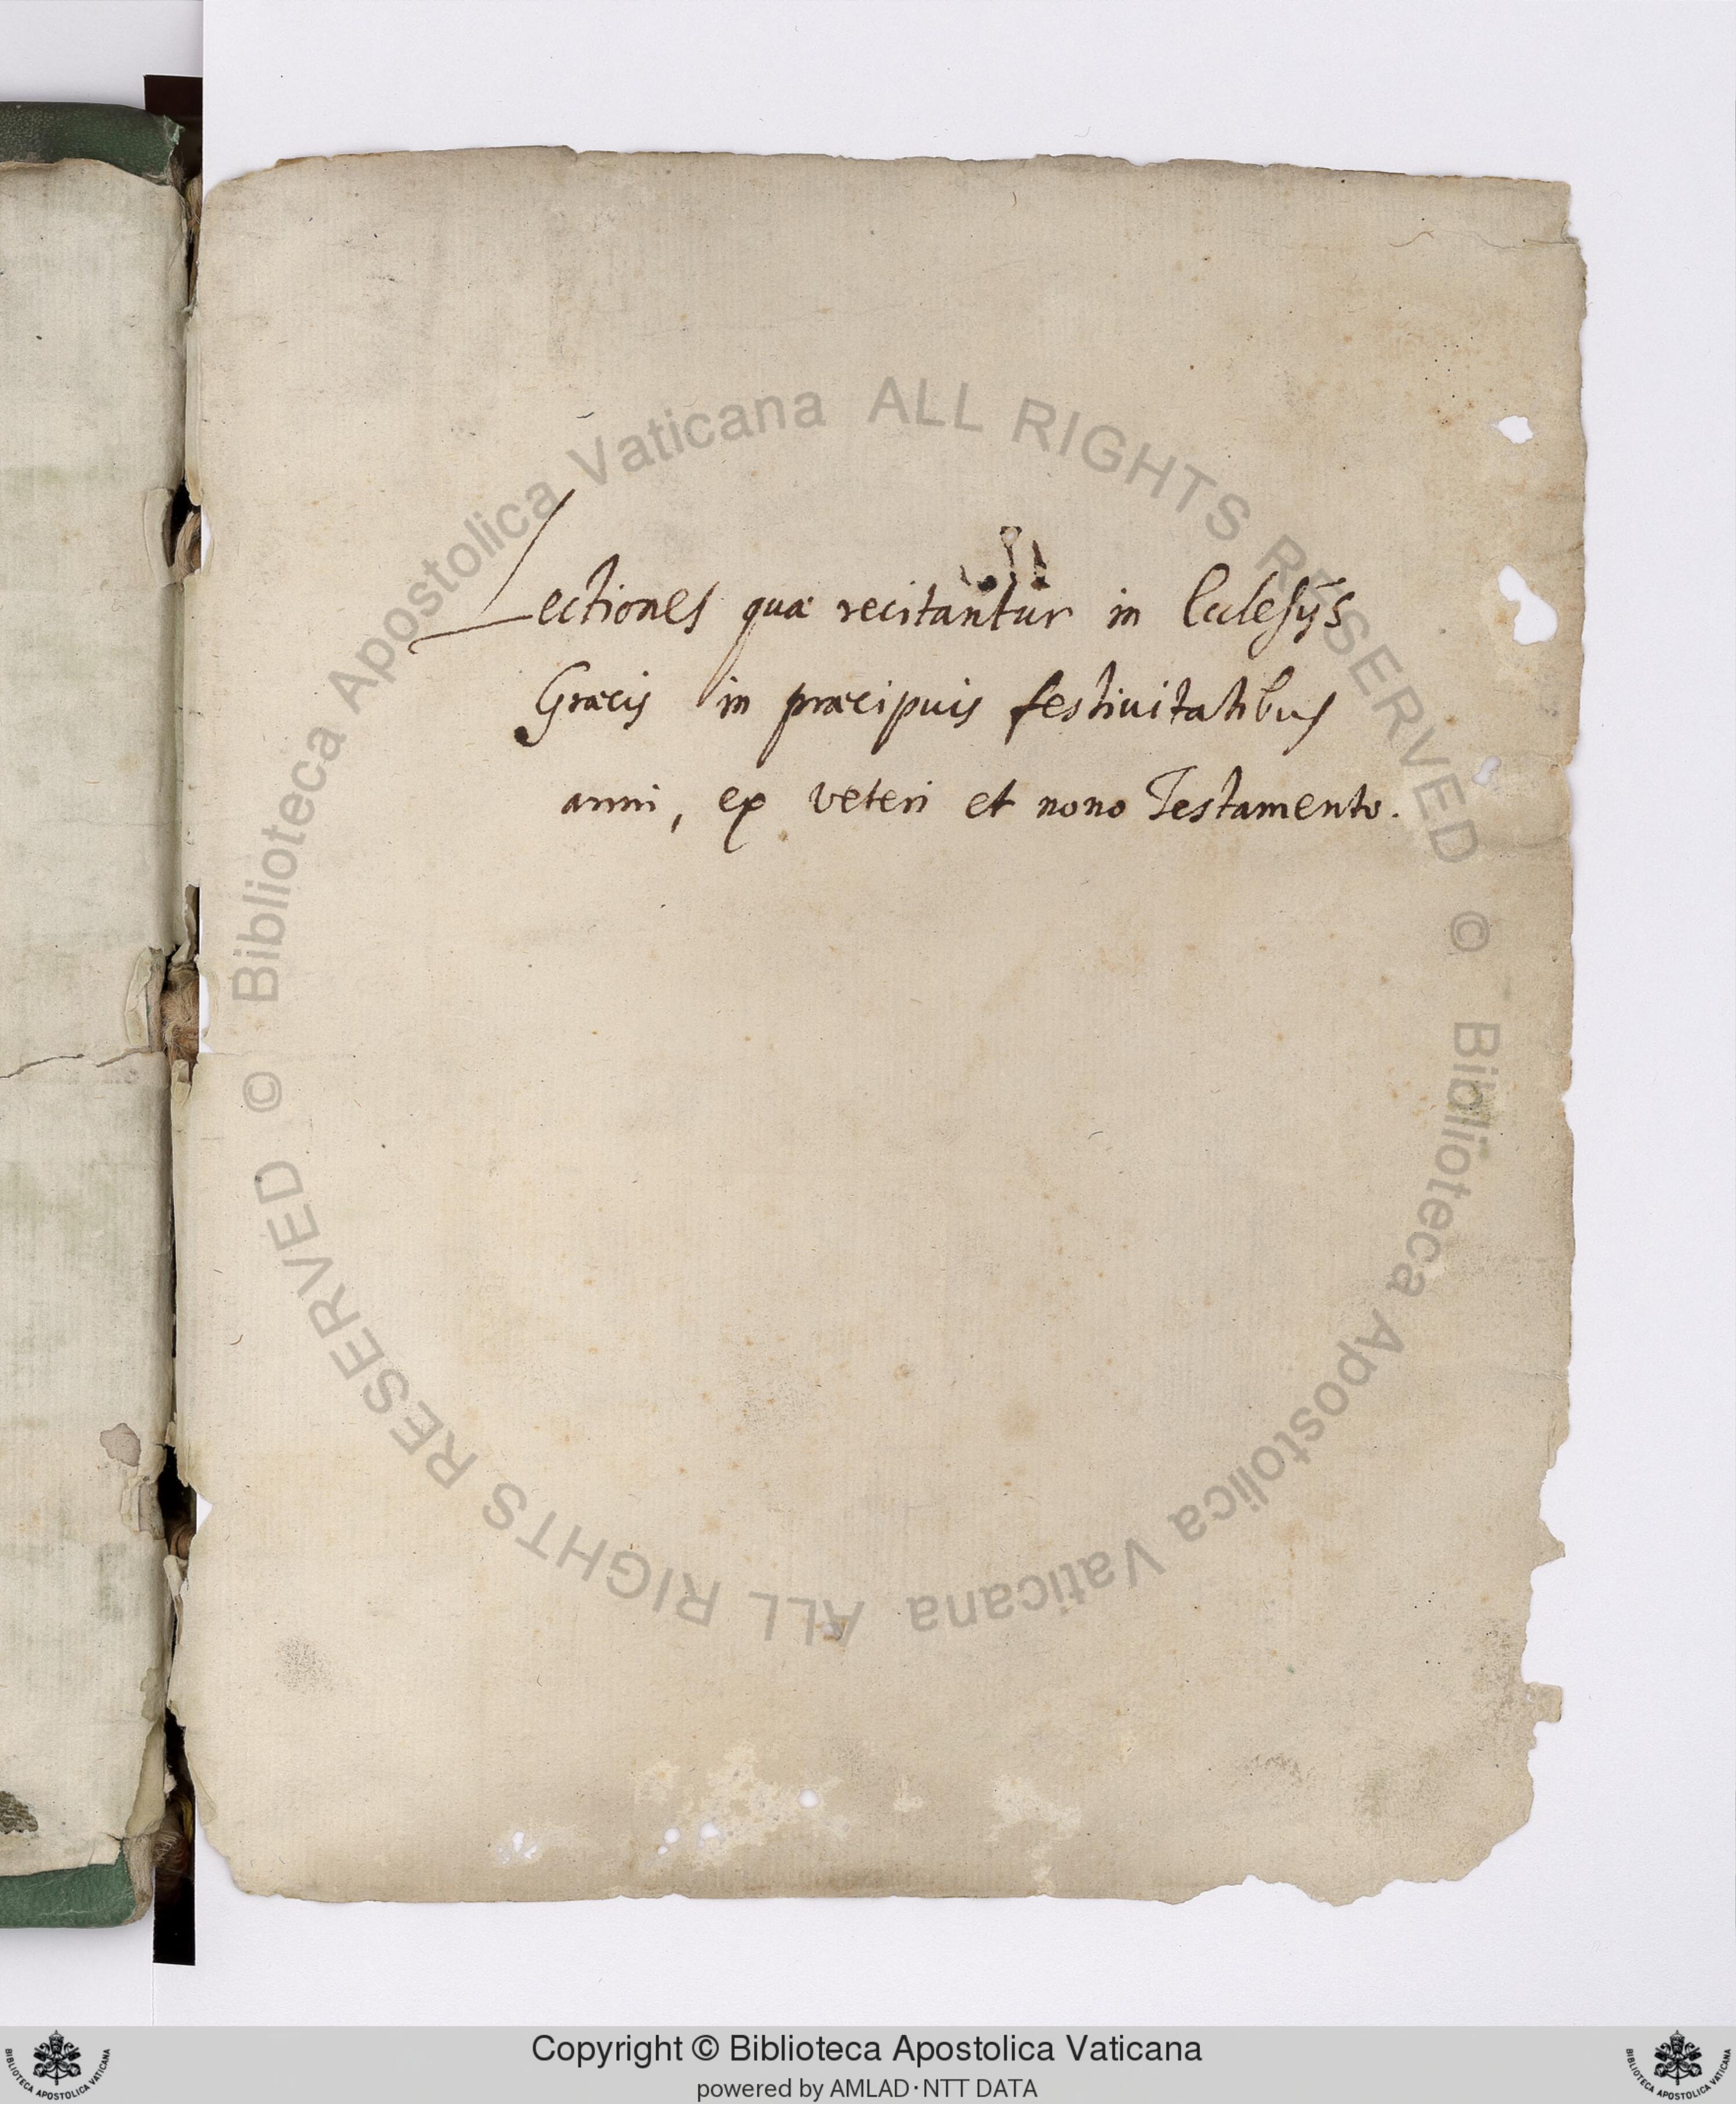 Lectiones quæ recitantur in Ecclesijs
Græcis in præcipuis festiuitatibus
anni, ex veteri et nouo Testamento.
© Biblioteca Apostolica Vaticana ALL RIGHTS RESERVED
© Biblioteca Apostolica Vaticana ALL RIGHTS RESERVED
Copyright © Biblioteca Apostolica Vaticana
powered by AMLAD·NTT DATA
BIBLIOTECA APOSTOLICA VATICANA
BIBLIOTECA APOSTOLICA VATICANA